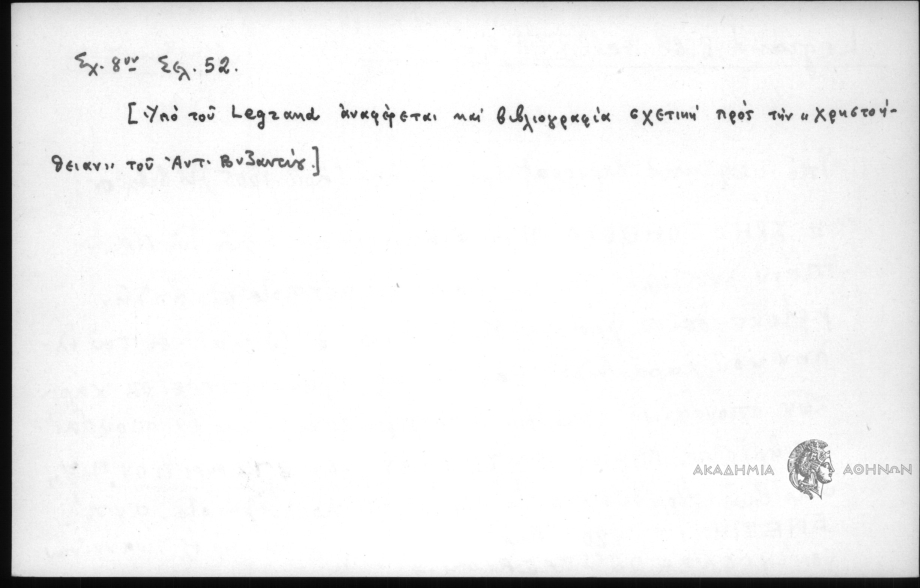 Σχ. 8ον Σελ. 52.
[Ὑπὸ τοῦ Legrand ἀναφέρεται καὶ βιβλιογραφία σχετικὴ πρὸς τὴν «Χρηστοή-
θειαν» τοῦ Ἀντ. Βυζαντίου.]
ΑΚΑΔΗΜΙΑ ΑΘΗΝΩΝ